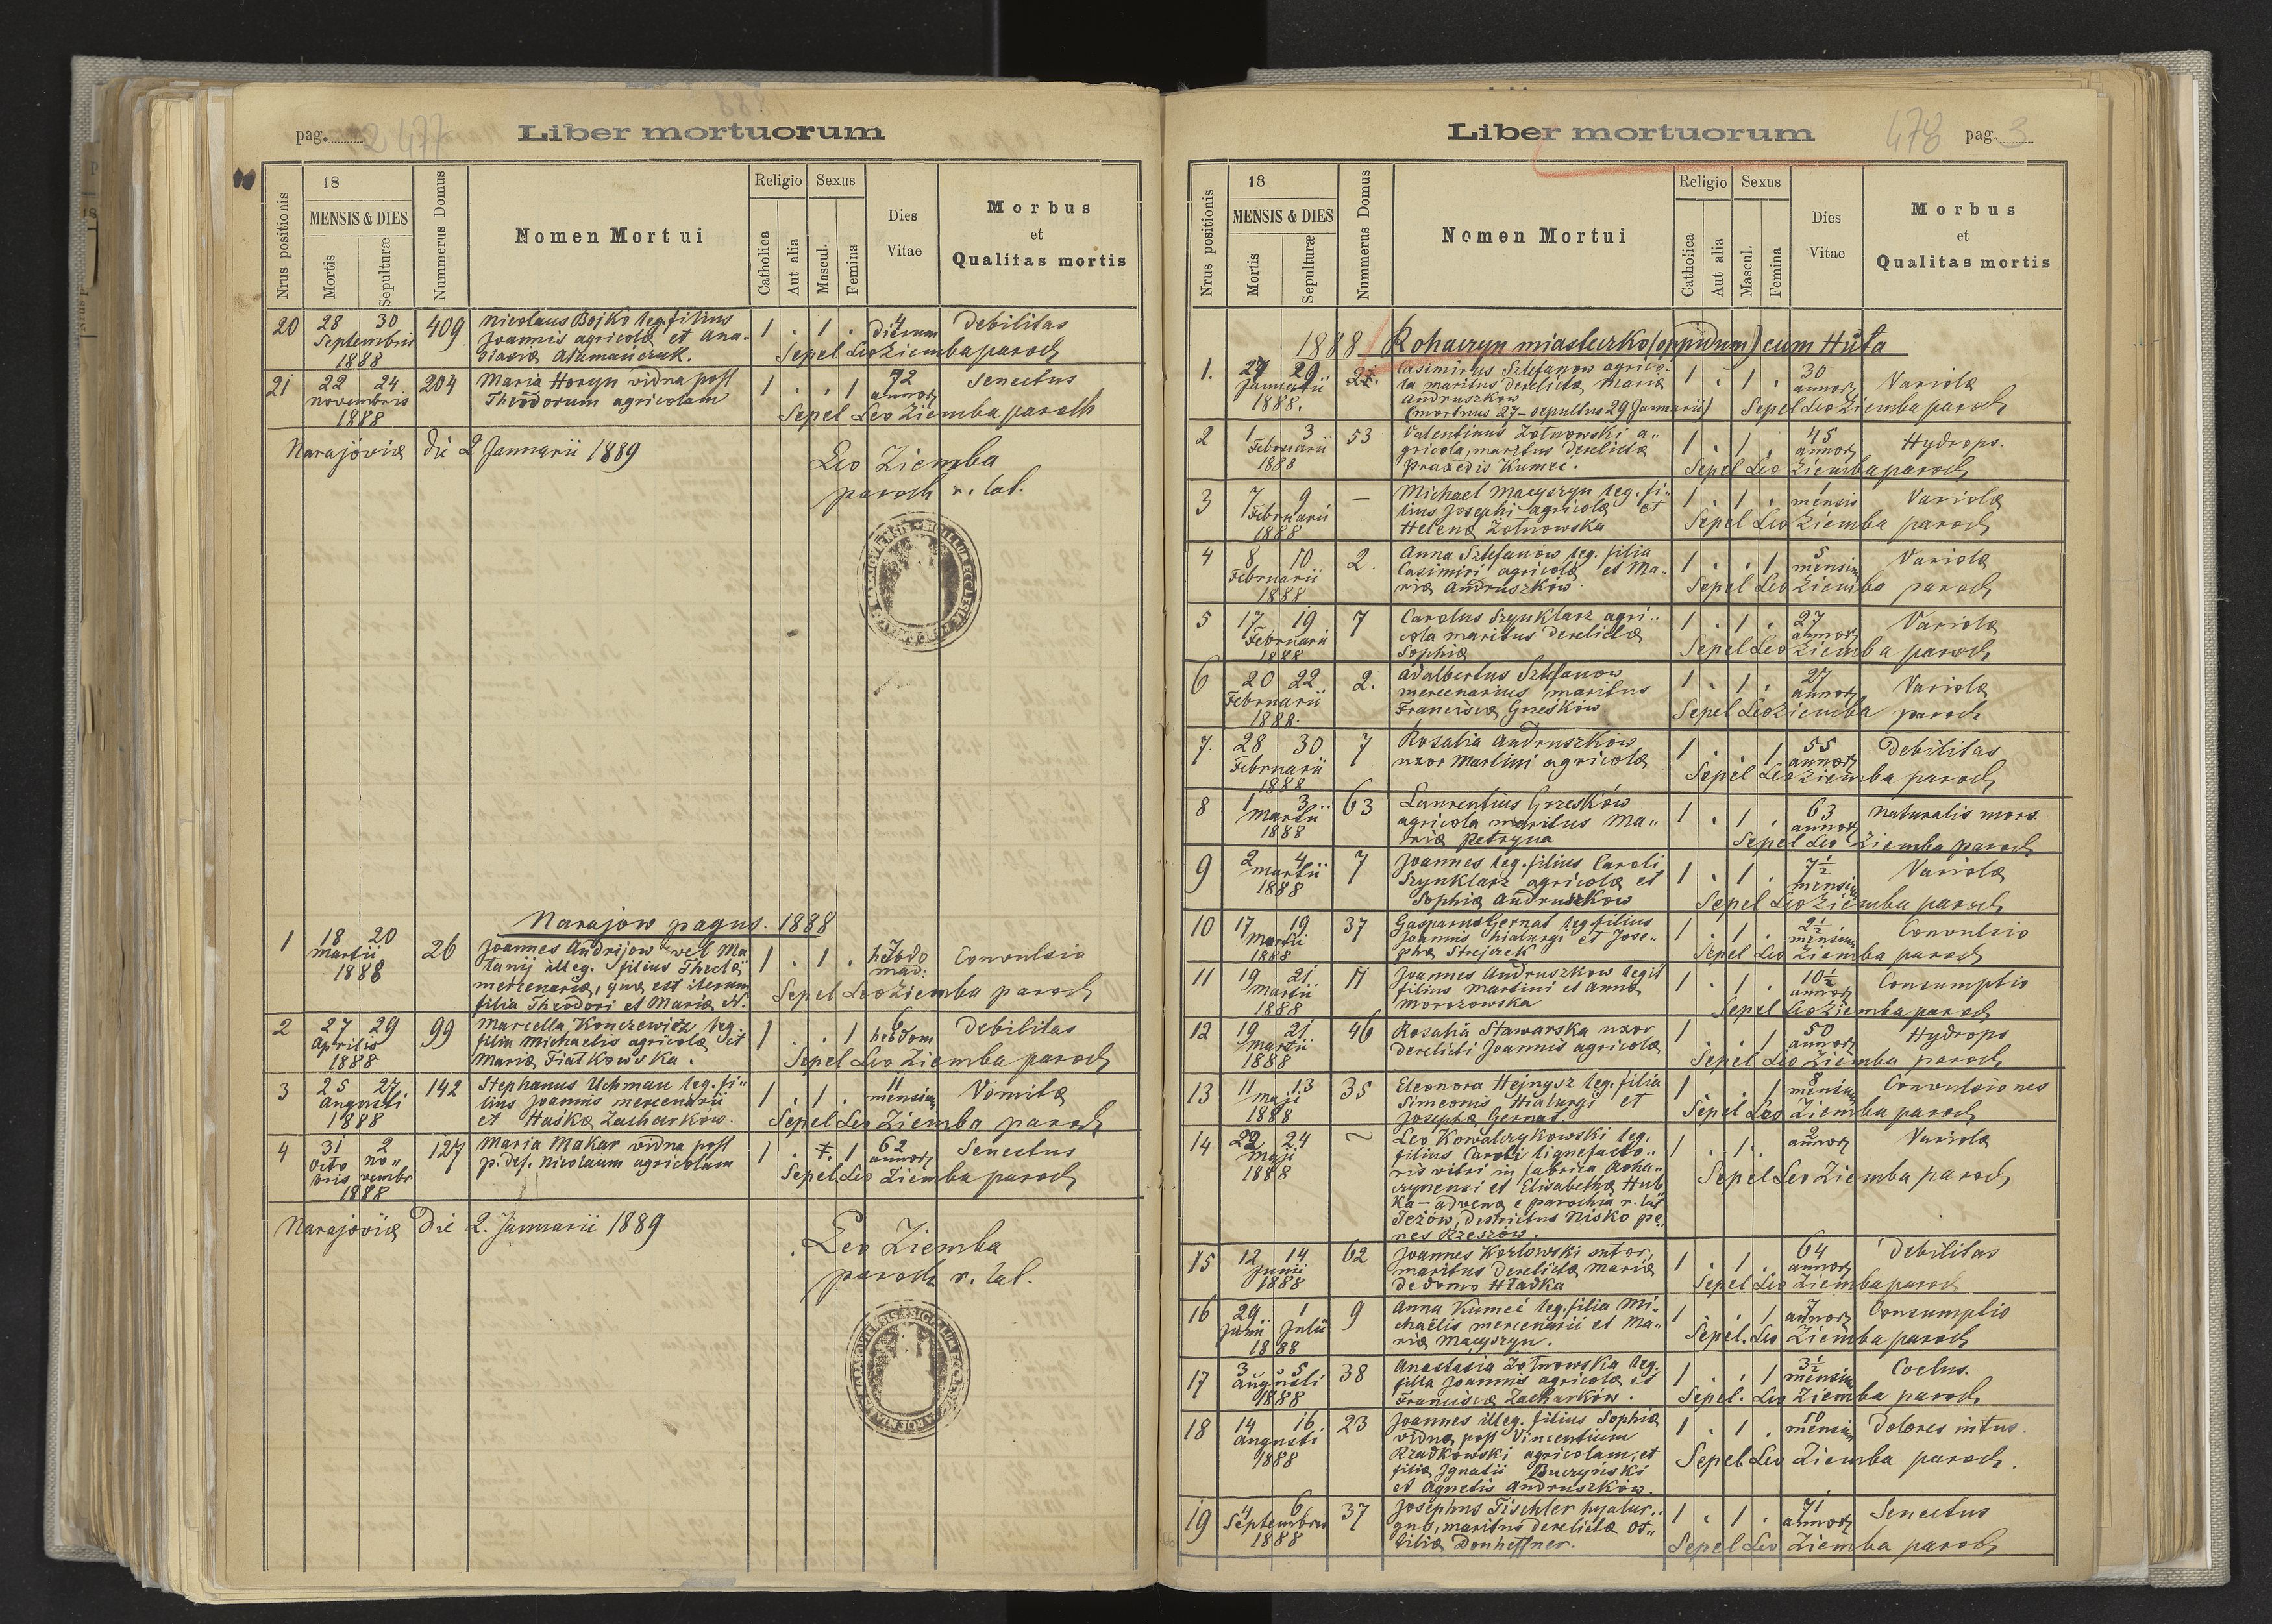 pag. 2 477
Liber mortuorum
Nrus positionis
18
MENSIS & DIES
Mortis
Sepulturæ
Nummerus Domus
Nomen Mortui
Religio
Catholica
Aut alia
Sexus
Mascul.
Femina
Dies
Vitae
Morbus
et
Qualitas mortis
20 28 30 409 Nicolaus Bojko leg. filius 1 . 1 . 4 Debilitas
Septembris Joannis agricolæ et Ana- dierum
1888 stasiæ Adamańczuk. Sepel Leo Ziemba paroch
21 22 24 204 Maria Horyn vidua post 1 . . 1 72 Senectus
novembris Theodorum agricolam annor
1888 Sepel Leo Ziemba paroch
Narajoviæ Die 2 Januarii 1889 Leo Ziemba
paroch r. lat.
Narajow pagus. 1888
1 18 20 26 Joannes Andrijow vel Ma 1 . 1 . 7 Convulsio
Martii tanij illeg. filius Theclæ hebdo
1888 mercenariæ, quæ est iterum mad:
filia Theodori et Mariæ N. Sepel Leo Ziemba paroch
2 27 29 99 Marcella Konczewicz leg. 1 . . 1 6 Debilitas
Aprilis filia Michaelis agricolæ et hebdom
1888 Mariæ Fiatkowska. Sepel Leo Ziemba paroch
3 25 27 142 Stephanus Uchman leg. fi- 1 . 1 . 11 Vomitæ
Augusti lius Joannis mercenarii mensium
1888 et Haskæ Zacharków. Sepel Leo Ziemba paroch
4 31 2 127 Maria Makar vidua post 1 . . 1 62 Senectus
Octo no- p. def. Nicolaum agricolam annor
bris vembr Sepel. Leo Ziemba paroch
1888
Narajoviæ Die 2. Januarii 1889 Leo Ziemba
paroch r. lat.
Liber mortuorum
478 pag. 3
Nrus positionis
18
MENSIS & DIES
Mortis
Sepulturæ
Nummerus Domus
Nomen Mortui
Religio
Catholica
Aut alia
Sexus
Mascul.
Femina
Dies
Vitae
Morbus
et
Qualitas mortis
1888 Rohaczyn miasteczko (oppidum) cum Huta
1. 27 29 Casimirus Sztefanow agrico- 1 . 1 . 30 Variolæ
Januarii la maritus derelictæ Mariæ annor
1888. Andruszkow
(mortuus 27 - sepultus 29 Januarii) Sepel Leo Ziemba paroch
2 1 3 53 Valentinus Żołnowski a- 1 . 1 . 45 Hydrops.
Februarii gricola, maritus derelictæ annor
1888 Praxedis Kumeć. Sepel Leo Ziemba paroch
3 7 9 — Michael Macyszyn leg. fi- 1 . 1 . 1 Variolæ
Februarii lius Josephi agricolæ et mensis
1888 Helenæ Żołnowska Sepel Leo Ziemba paroch
4 8 10 2. Anna Sztefanów leg. filia 1 . . 1 5 Variolæ
Februarii Casimiri agricolæ et Ma- mensium
1888 riæ Andruszków. Sepel Leo Ziemba paroch
5 17 19 7 Carolus Szynklarz agri- 1 . 1 . 27 Variolæ
Februarii cola maritus derelictæ annor
1888 Sophiæ Sepel Leo Ziemba paroch
6 20 22 2. Adalbertus Sztefanow 1 . 1 . 27 Variolæ
Februarii mercenarius maritus annor
1888 Franciscæ Grzesków Sepel Leo Ziemba paroch
7. 28 30 7 Rosalia Andruszków 1 . . 1 55 Debilitas
Februarii uxor Martini agricolæ annor
1888 Sepel Leo Ziemba paroch
8 1 3 63 Laurentius Grzesków 1 . 1 . 63 naturalis mors.
Martii agricola maritus Ma- annor
1888 riæ Petryna Sepel Leo Ziemba paroch
9 2 4 7 Joannes leg. filius Caroli 1 . 1 . 7½ Variolæ
Martii Szynklarz agricolæ et mensium
1888 Sophiæ Andruszkow Sepel Leo Ziemba paroch
10 17 19 37 Gasparus Gernat leg filius 1 . 1 . 2½ Convulsio
Martii Joannis hialurgi et Jose- mensium
1888 phæ Strejczek Sepel Leo Ziemba paroch
11 19 21 11 Joannes Andruszkow legit 1 . 1 . 10½ Consumptio
Martii filius Martini et Annæ annor
1888 Morozowska Sepel Leo Ziemba paroch
12 19 21 46 Rosalia Stawarska uxor 1 . . 1 50 Hydrops
Martii derelicti Joannis agricolæ annor
1888 Sepel Leo Ziemba paroch
13 11 13 35 Eleonora Hejnysz leg. filia 1 . . 1 8 Convulsiones
Maji Simeonis Hialurgi et mensium
1888 Josephæ Gernat. Sepel Leo Ziemba paroch
14 22 24 ~ Leo Kowalczykowski leg. 1 . 1 . 2 Variolæ
Maji filius Caroli lignefacto- annor
1888 ris vitri in fabrica Roha-
czynensi et Elisabethæ Hub Sepel Leo Ziemba paroch
ka - advena e parochia r. lat
Jeżów, districtus Nisko pe-
nes Rzeszow.
15 12 14 62 Joannes Kozłowski sutor, 1 . 1 . 64 Debilitas
Junii maritus derelictæ Mariæ annor
1888 de domo Hładka Sepel Leo Ziemba paroch
16 29 1 9 Anna Kumeć leg. filia Mi- 1 . . 1 7 Consumptio
Junii Julii chaëlis mercenarii et Ma- annor
1888 riæ Macyszyn. Sepel. Leo Ziemba paroch
17 3 5 38 Anastasia Żołnowska leg. 1 . . 1 3½ Coctus.
Augusti filia Joannis agricolæ et mensium
1888 Franciscæ Zacharków. Sepel. Leo Ziemba paroch
18 14 16 23 Joannes illeg. filius Sophiæ 1 . 1 . 10 Dolores intus.
Augusti viduæ post Vincentium mensium
1888 Rzadkowski agricolam, et
filiæ Ignatii Buczyński Sepel Leo Ziemba paroch.
et Agnetis Andruszków.
19 4 6 37 Josephus Tischler hyalur- 1 . 1 . 71 Senectus
Septembris gus, maritus derelictæ Ot- annor
1888 tiliæ Donheffner. Sepel Leo Ziemba paroch